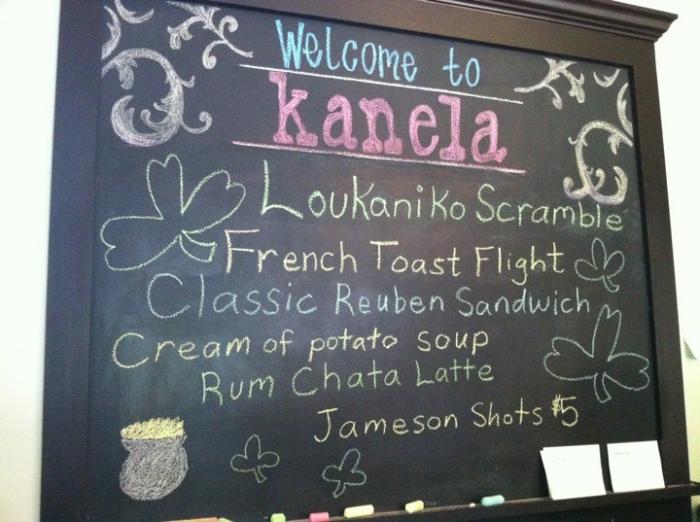 Welcome to
kanela
Loukaniko Scramble
French Toast Flight
Classic Reuben Sandwich
Cream of potato soup
Rum Chata Latte
Jameson Shots $5